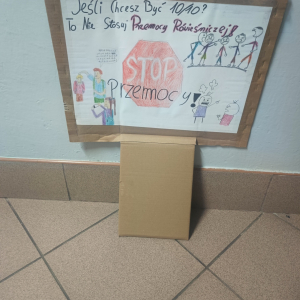 Jeśli Chcesz Być 10/10?
To Nie Stosuj Przemocy Rówieśniczej!
STOP
Przemocy